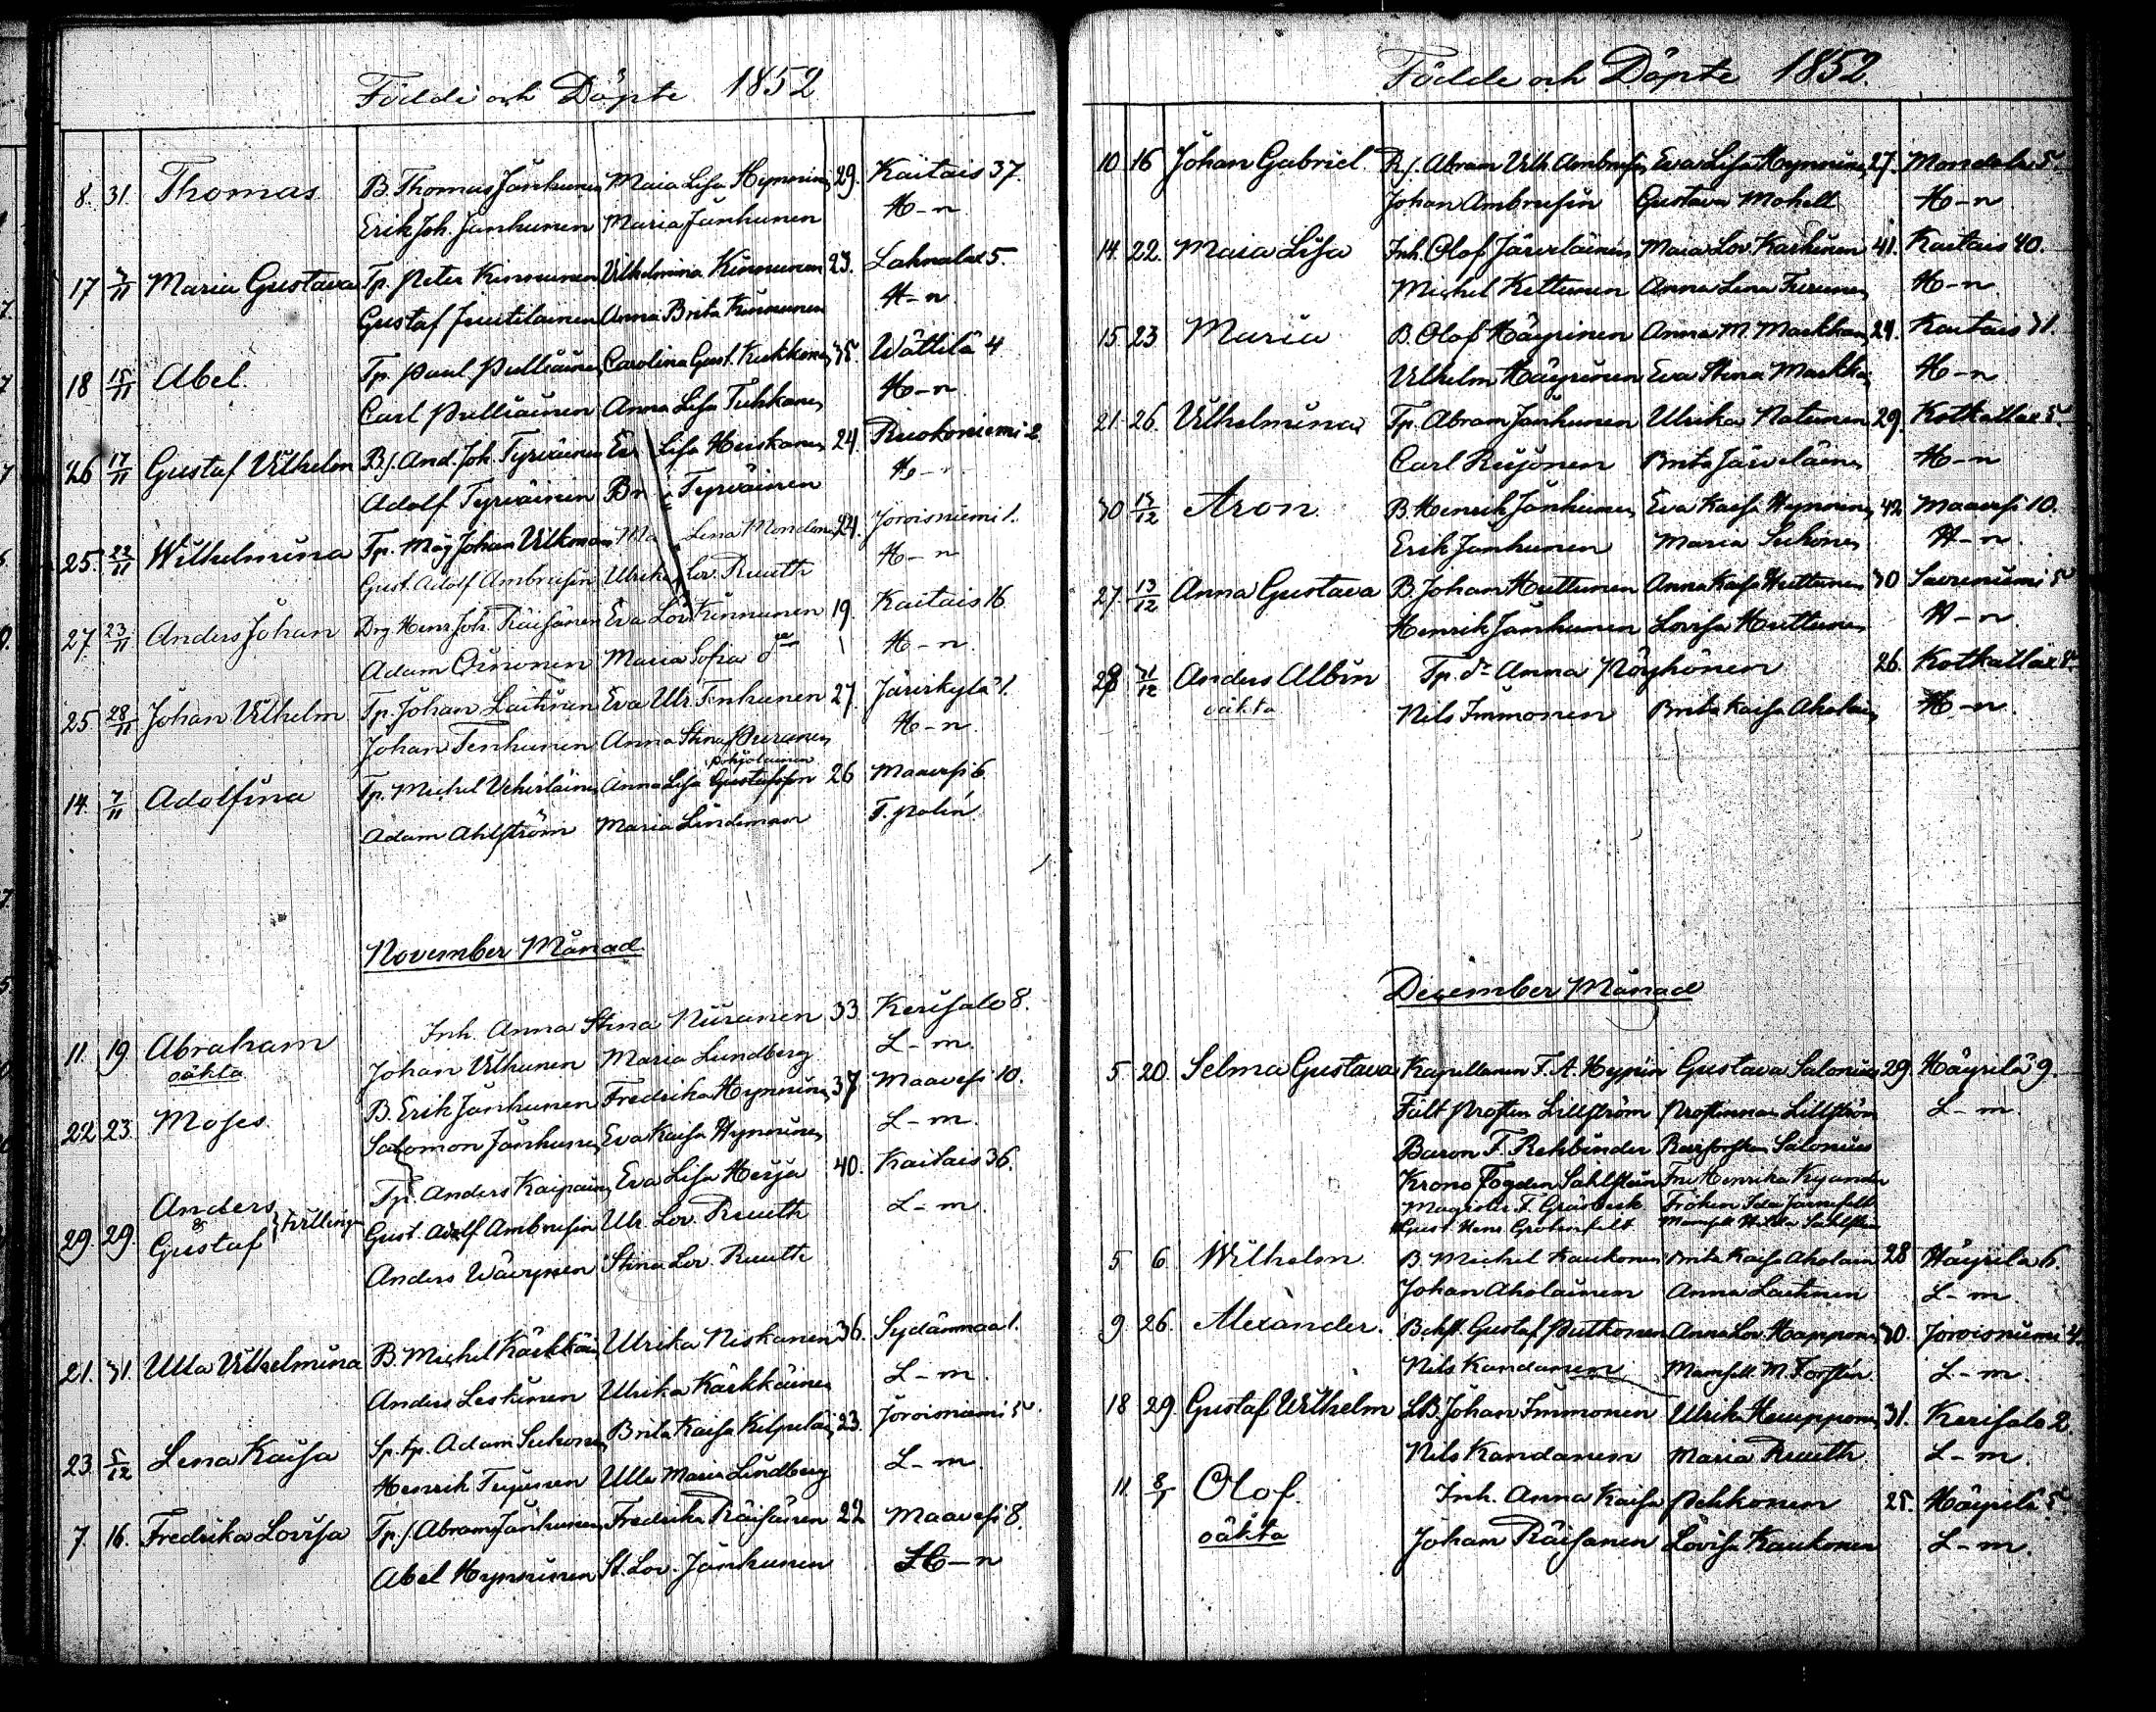 Födde och Döpte 1852
8. 31. Thomas B. Thomas Janhunen Maia Lisa Hynninen 29. Kaitais 37.
Erik Joh. Janhunen Maria Janhunen H-n
17 7/11 Maria Gustava Tp. Peter Kinnunen Vilhelmina Kinnunen 23. Lahnalax 5.
Gustaf Juutilainen Anna Brita Kinnunen H-n
18 15/11 Abel. Tp. Paul Pulliainen Carolina Gust. Kukkonen 35. Wättilä 4
Carl Pulliainen Anna Lisa Tuhkanen H-n
26 17/11 Gustaf Vilhelm Bs. And. Joh. Tyrväinen Lisa Heiskanen 24. Ruokoniemi 2
Adolf Tyrväinen Tyrväinen H-n
25. 22/11 Wilhelmina Tp. Måg Johan Vilkman Lena Mondon 24. Joroisniemi 1.
Gust. Adolf Ambrusin Ulrika Lov. Ruuth H-n
27 23/11 Anders Johan Drg Henr. Joh. Räisänen Eva Lov. Kinnunen 19. Kaitais 16
Adam Oinonen Maria Sofia H-n.
25. 28/11 Johan Vilhelm Tp. Johan Laitinen Eva Ulr. Tenhunen 27. Järvikylä 1.
Johan Tenhunen Anna Stina Puranen H-n.
Pohjolainen
14. 7/11 Adolfina Tp. Michel Vehviläinen Anna Lisa Gustafsson 26 Maavesi 6.
Adam Ahlström Maria Lindeman T. Polén
November Månad.
Inh. Anna Stina Niiranen 33. Kerisalo 8.
11. 19 Abraham Johan Vilhunen Maria Lundberg L-m.
oäkta
22 23 Moses B. Erik Janhunen Fredrika Hynninen 37. Maavesi 10.
Salomon Janhunen Eva Kaisa Hynninen L-m.
Tp. Anders Kaipainen Eva Lisa Herja 40. Kaitais 36.
29. 29. Anders & Gustaf } Tvillingar Gust. Adolf Ambrusin Ulr. Lov. Ruuth L-m
Anders Wäyrynen Stina Lov. Ruuth
21. 31. Ulla Vilhelmina B. Michel Kärkkäinen Ulrika Niskanen 36. Sydänmaa 1.
Anders Leskinen Ulrika Kärkkäinen L-m.
23. 5/12 Lena Kaisa Sp. tp. Adam Suhonen Brita Kaisa Kilpeläinen 23. Joroisniemi 5.
Henrik Turunen Ulla Maria Lindberg L-m.
7. 16. Fredrika Lovisa Tp. s. Abram Janhunen Fredrika Räisänen 22 Maavesi 8.
Abel Hynninen St. Lov. Janhunen H-n
Födde och Döpte 1852.
10 16 Johan Gabriel Rs. Abram Vilh. Ambrusin Eva Lisa Hynninen 27. Mondola 5.
Johan Ambrusin Gustava Mohell H-n
14. 22. Maia Lisa Inh. Olof Järveläinen Maia Lov. Karhinen 41. Kaitais 40.
Michel Kettunen Anna Lena Turunen H-n
15. 23 Maria B. Olof Häyrinen Anna M. Markkanen 24. Kaitais 31.
Vilhelm Häyrinen Eva Stina Markkanen H-n
21. 26. Vilhelmina Tp. Abram Janhunen Ulrika Natunen 29. Kotkatlax 5.
Carl Reijonen Brita Järveläinen H-n
30 13/12 Aron B. Henrik Janhunen Eva Kaisa Hynninen 42 Maavesi 10.
Erik Janhunen Maria Suhonen H-n.
27. 13/12 Anna Gustava B. Johan Huttunen Anna Kaisa Huttunen 30 Savuniemi 5
Henrik Janhunen Lovisa Huttunen H-n.
28 31/12 Anders Albin Tp. dr Anna Pöyhönen 26. Kotkatlax 8.
oäkta Nils Immonen Brita Kaisa Aholainen H-n.
December Månad
5. 20. Selma Gustava Kapellanen F. A. Hypén Gustava Salonius 29. Häyrilä 9.
Fält Prosten Lillström Prostinnan Lillström L-m.
Baron F. Rehbinder Salonius
Krono Fogden Sahlstein Fru Henrika Kyander
Magister F. Gråsbeck Fröken Ida Järnefelt
Gust. Henr. Grotenfelt Mamsell Hilda Sahlstein
5 6. Wilhelm B. Michel Kaukonen Brita Kaisa Aholain 28 Häyrilä 6.
Johan Aholainen Anna Laitinen L-m.
9. 26. Alexander. Bekfl. Gustaf Putkonen Anna Lov. Happonen 30. Joroisniemi 4.
Nils Kandanen Mamsell M. Forstén L-m.
18 29. Gustaf Vilhelm LB. Johan Immonen Ulrika Heimponen 31. Kerisalo 2.
Nils Kandanen Maria Ruuth L-m.
11. 8/1 Olof. Inh. Anna Kaisa Pekkonen 25. Häyrilä 5.
oäkta Johan Räisänen Lovisa Kaukonen L-m.